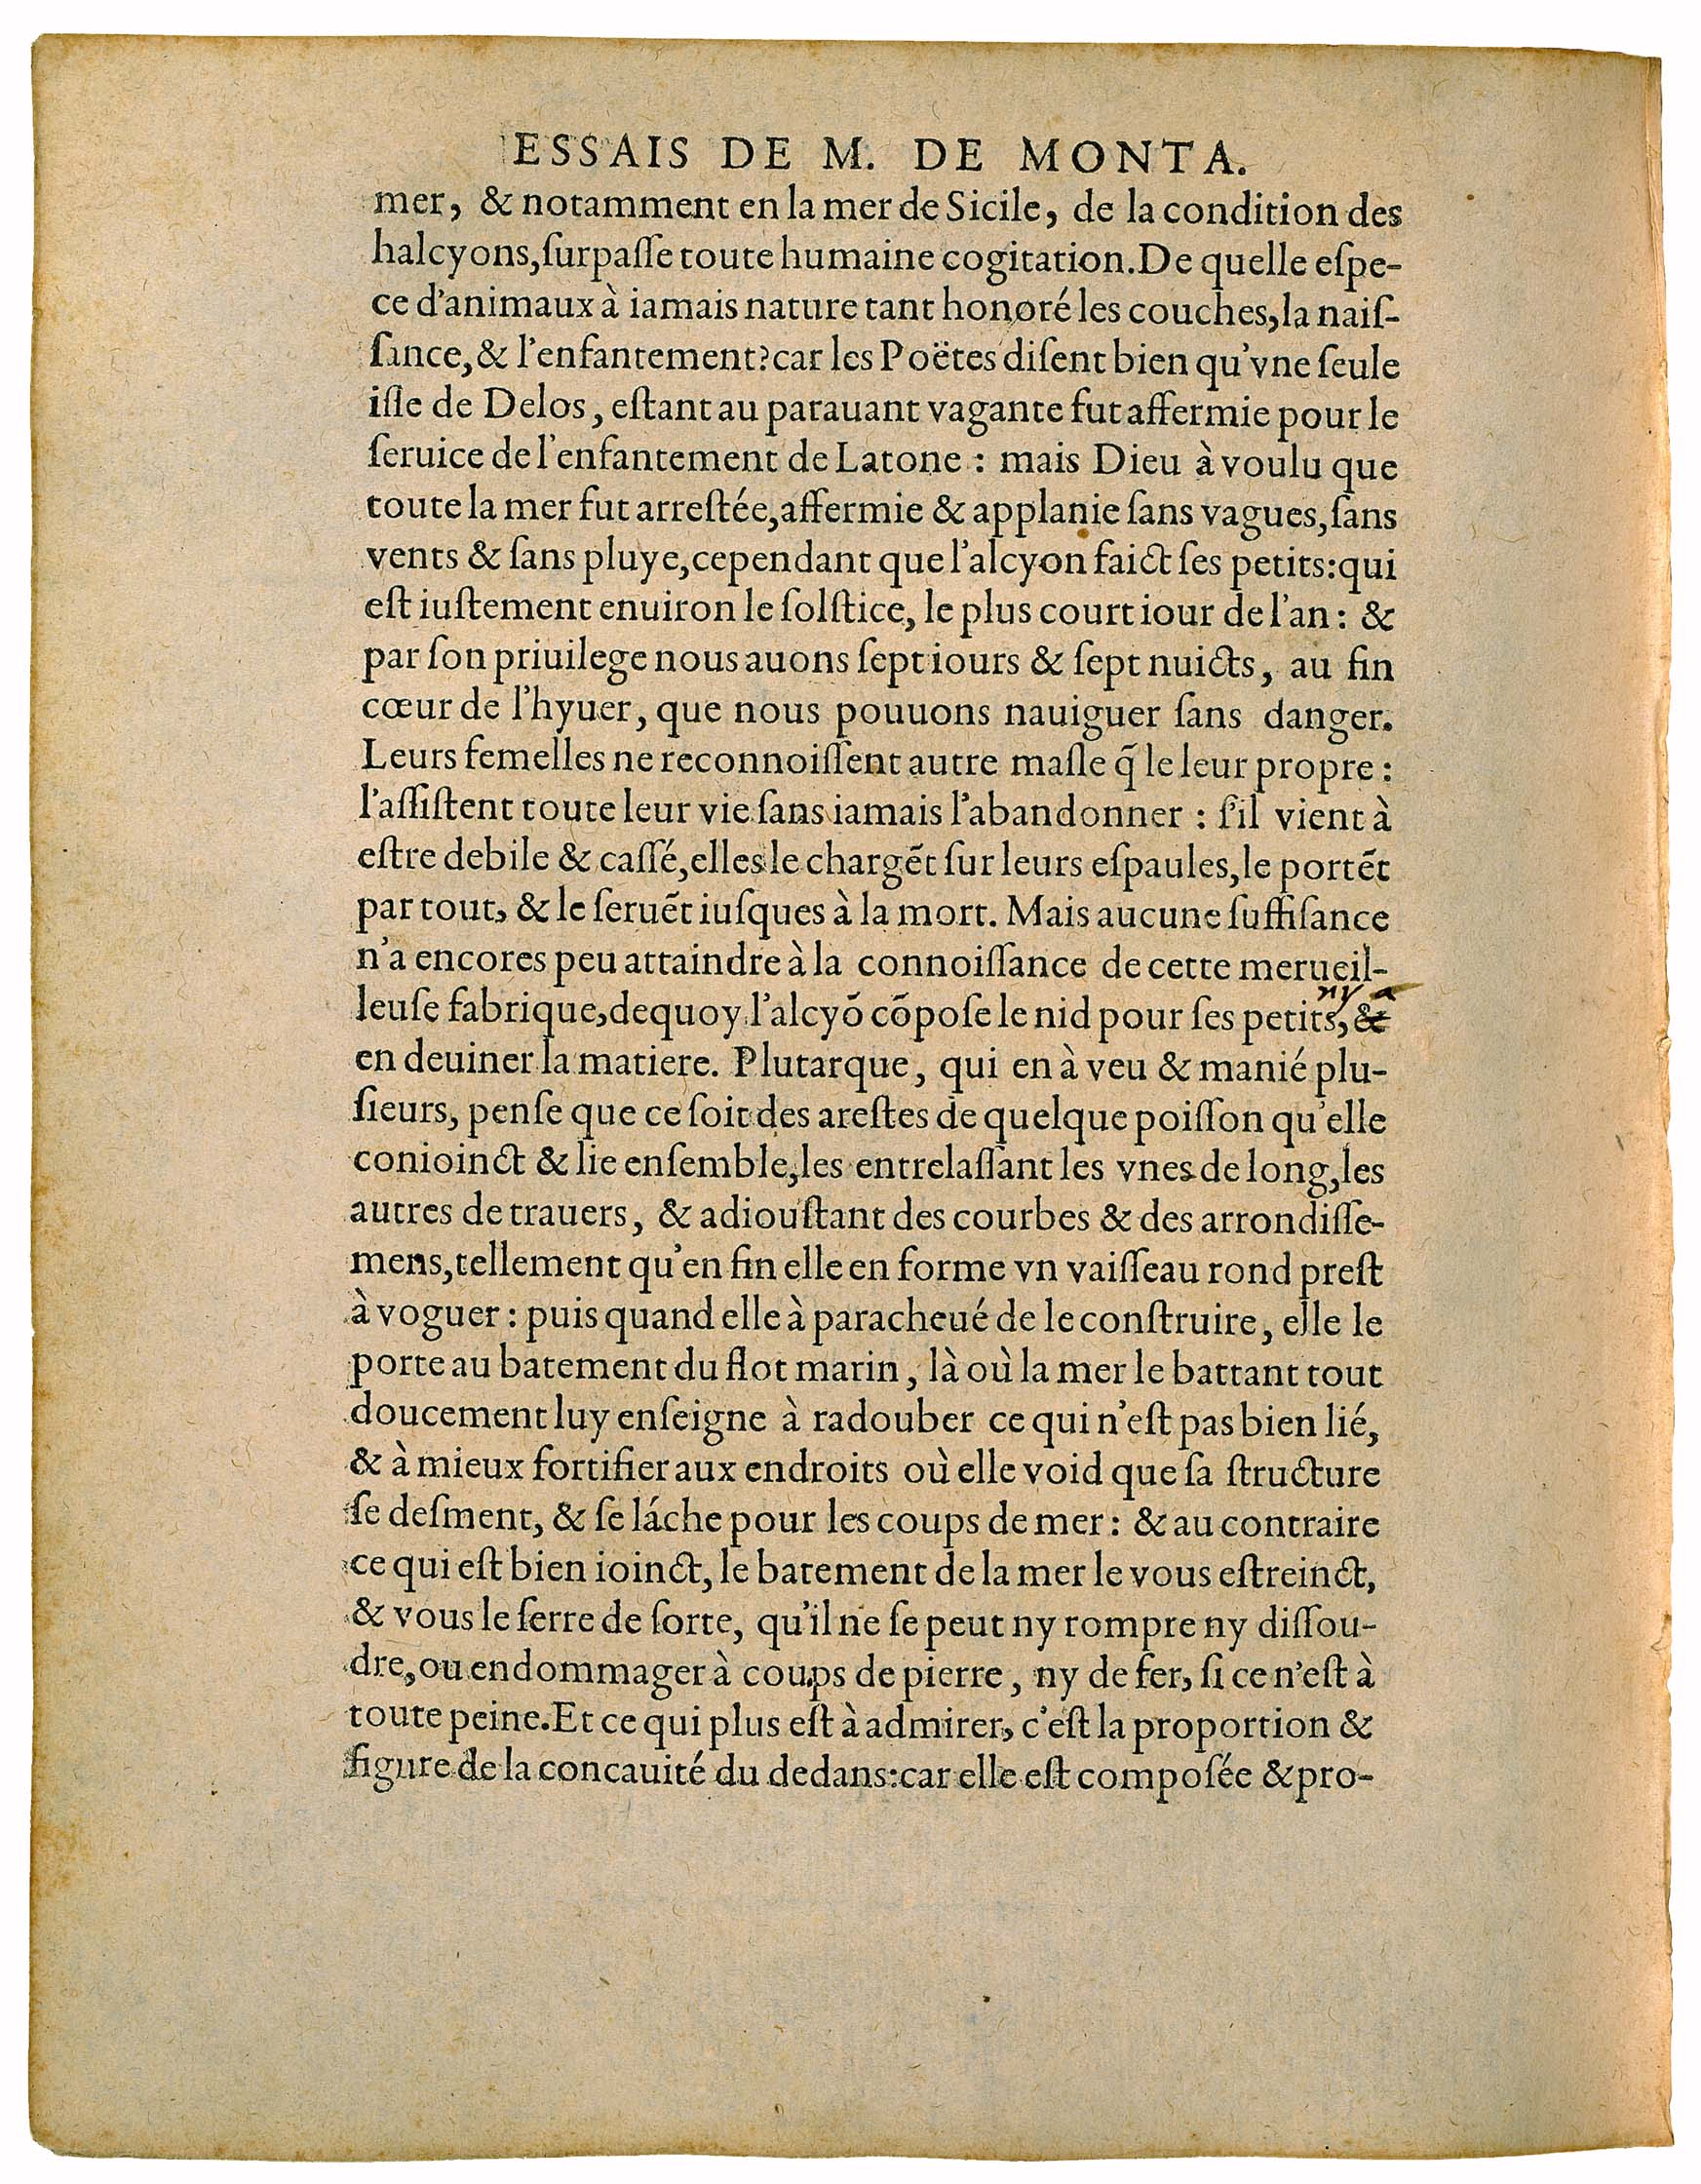 ESSAIS DE M. DE MONTA.
mer, & notamment en la mer de Sicile, de la condition des
halcyons, ſurpaſſe toute humaine cogitation. De quelle eſpe-
ce d'animaux à iamais nature tant honoré les couches, la naiſ-
ſance, & l'enfantement? car les Poëtes diſent bien qu'vne ſeule
iſle de Delos, eſtant au parauant vagante fut affermie pour le
ſeruice de l'enfantement de Latone : mais Dieu à voulu que
toute la mer fut arreſtée, affermie & applanie ſans vagues, ſans
vents & ſans pluye, cependant que l'alcyon faict ſes petits: qui
eſt iuſtement enuiron le ſolſtice, le plus court iour de l'an : &
par ſon priuilege nous auons ſept iours & ſept nuicts, au fin
cœur de l'hyuer, que nous pouuons nauiguer ſans danger.
Leurs femelles ne reconnoiſſent autre maſle q̃ le leur propre :
l'aſſiſtent toute leur vie ſans iamais l'abandonner : ſ'il vient à
eſtre debile & caſſé, elles le chargẽt ſur leurs eſpaules, le portẽt
par tout, & le ſeruẽt iuſques à la mort. Mais aucune ſuffiſance
n'a encores peu attaindre à la connoiſſance de cette merueil-
ny a
leuſe fabrique, dequoy l'alcyõ cõpoſe le nid pour ſes petits, &
en deuiner la matiere. Plutarque, qui en à veu & manié plu-
ſieurs, penſe que ce ſoit des areſtes de quelque poiſſon qu'elle
conioinct & lie enſemble, les entrelaſſant les vnes de long, les
autres de trauers, & adiouſtant des courbes & des arrondiſſe-
mens, tellement qu'en fin elle en forme vn vaiſſeau rond preſt
à voguer : puis quand elle à paracheué de le conſtruire, elle le
porte au batement du flot marin, là où la mer le battant tout
doucement luy enſeigne à radouber ce qui n'eſt pas bien lié,
& à mieux fortifier aux endroits où elle void que ſa ſtructure
ſe deſment, & ſe láche pour les coups de mer : & au contraire
ce qui eſt bien ioinct, le batement de la mer le vous eſtreinct,
& vous le ſerre de ſorte, qu'il ne ſe peut ny rompre ny diſſou-
dre, ou endommager à coups de pierre, ny de fer, ſi ce n'eſt à
toute peine. Et ce qui plus eſt à admirer, c'eſt la proportion &
figure de la concauité du dedans: car elle eſt compoſée & pro-